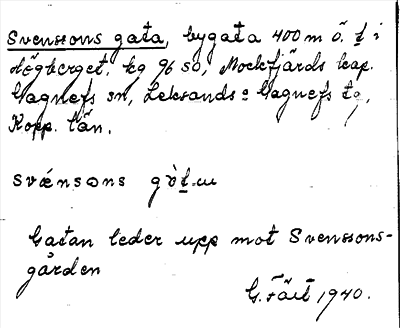 Svenssons gata, bygata 400 m ö. t i
Högberget, kg 96 SO, Mockfjärds kap.
Gagnefs sn, Leksands o Gagnefs tg,
Kopp. län.
svænsons gὸt.ɯ
Gatan leder upp mot Svenssons-
gården
G. 1940.